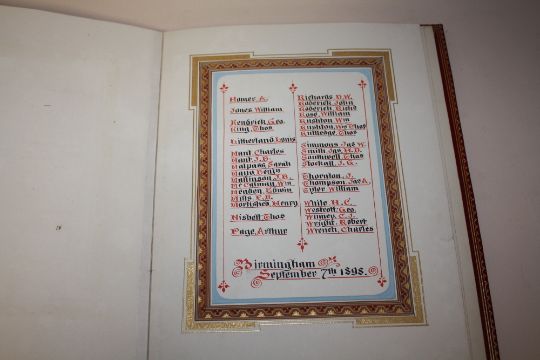 Homer A.
Jones William
Kendrick, Geo.
King, Thos
Litherland, Louis
Mant Charles
Mant J.B.
Malpass Sarah
Mallinson, J.B.
McCalmay Wm
Meaden, Edwin
Mills, E.D.
Mortished Henry
Nisbett Thos
Page, Arthur
Richards D.W.
Roderick John
Roderick Richd
Rose, William
Rushton Wm
Rushton, Wm Thos
Rutledge Thos
Simmons Jas W.
Smith Jas H.D.
Southwell, Thos
Stockall J.G.
Thornton J.
Thompson, Jas A.
Tyler William
White H.C.
Westcott, Geo.
Wilmer, C.J.
Wright, Robert
Wrench, Charles
Birmingham
September 7th 1898.